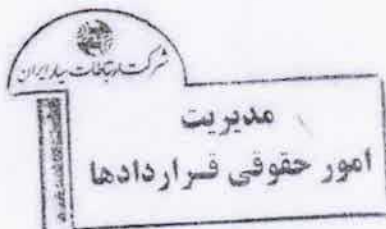 شرکت ارتباطات سیار ایران
مدیریت
امور حقوقی قراردادها